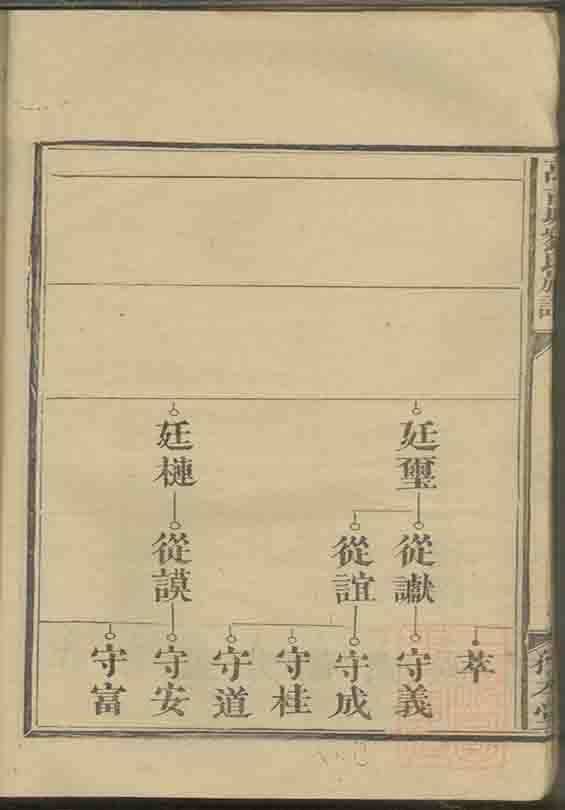 氏族譜
廷璽
廷槤
從讞
從誼
從謨
萃
守義
守成
守桂
守道
守安
守富